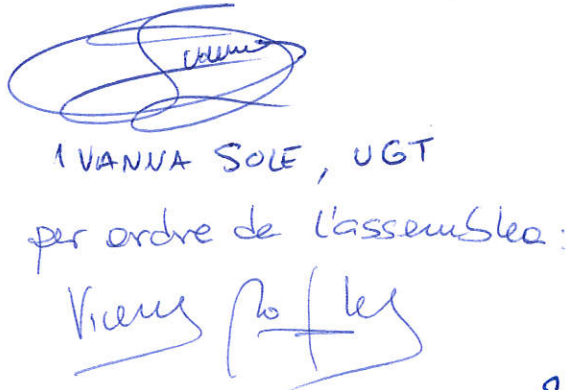 IVANNA SOLE, UGT
per ordre de l'assemblea:
Vicenç